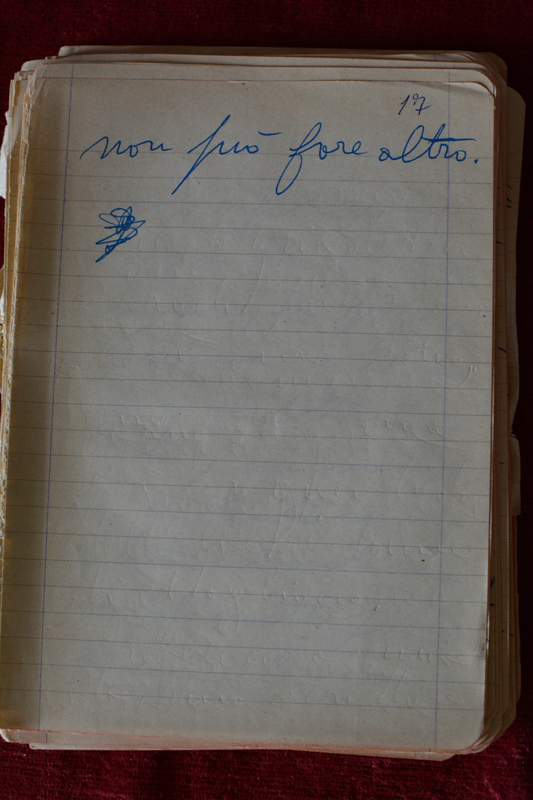 17
non può fare altro.